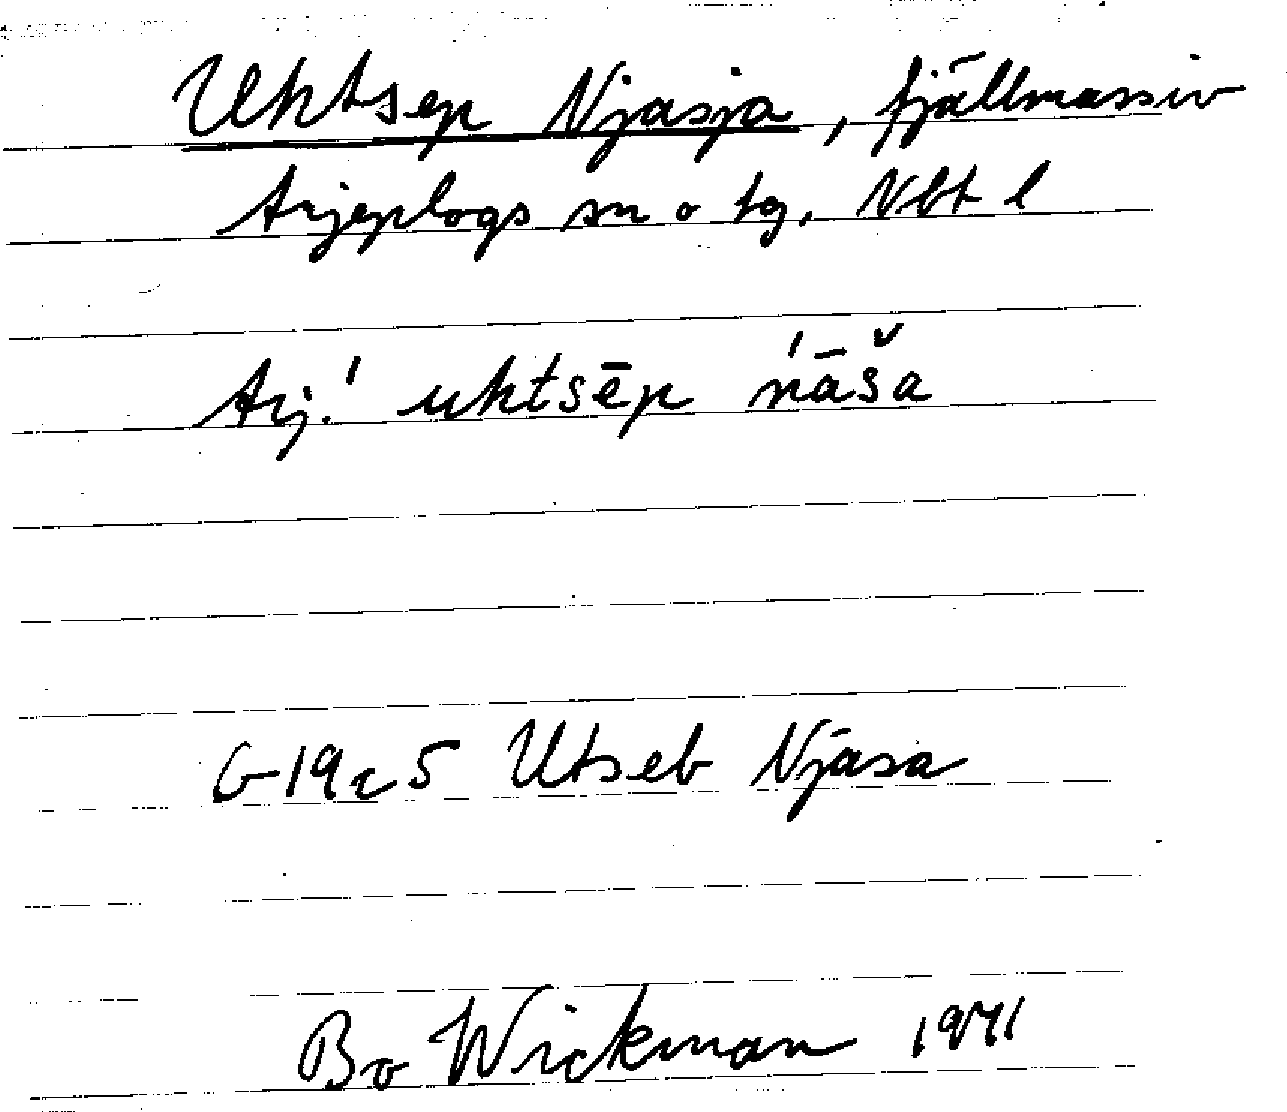 Uhtsep Njasja, fjällmassiv
Arjeplogs sn o tg. Nbt l
Arj! uhtsēp ńāša
G-19c5 Utseb Njasa
Bo Wickman 1971